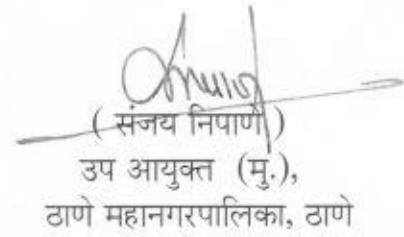 ( संजय निपाणे )
उप आयुक्त (मु.),
ठाणे महानगरपालिका, ठाणे